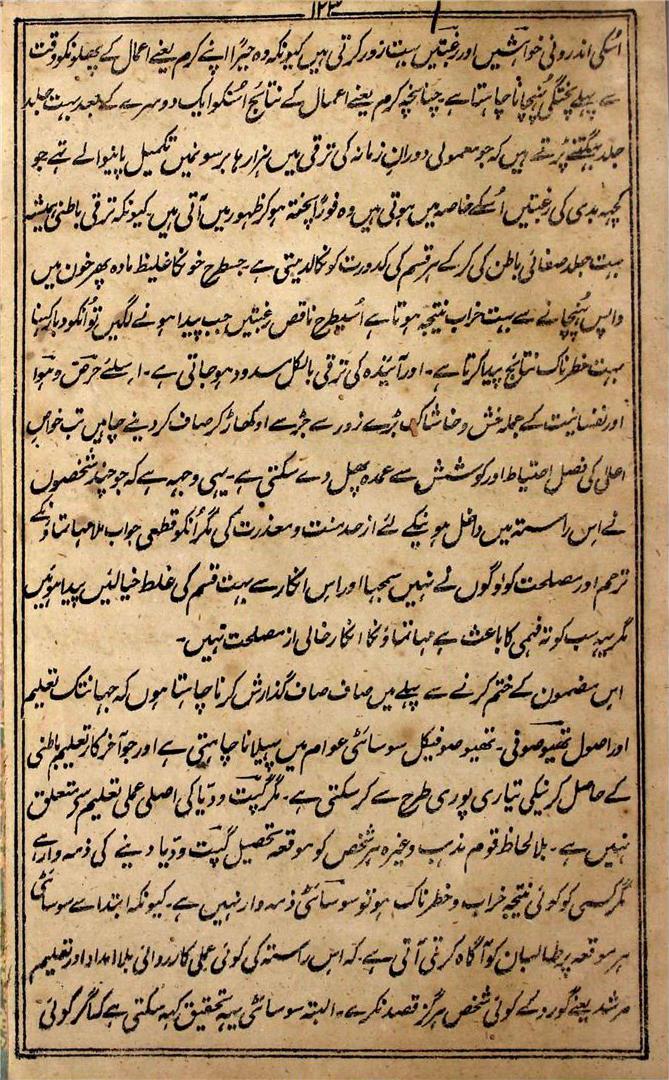 ۱۲۳
اُسکی اندرونی خواہشیں اور رغبتیں بہت زور کرتی ہیں کیونکہ وہ جبراً اپنے کرم یعنے اعمال کے پھلونکو وقت
سے پہلے پختگی پُہنچانا چاہتا ہے۔ چنانچہ کرم یعنے اعمال کے نتائج اُسکو ایک دوسرے کے بعد بہت جلد
جلد بھگتنے پڑتے ہیں کہ جو معمولی دوران زمانہ کی ترقی میں ہزارہا برسونمیں تکمیل پانیوالے تھے جو
کچھ بدی کی رغبتیں اُسکے خاصہ میں ہوتی ہیں وہ فوراً پختہ ہوکر ظہور میں آتی ہیں۔ کیونکہ ترقی باطنی ہمیشہ
بہت جلد صفائی باطن کی کرکے ہر قسم کی کدورت کو نکالدیتی ہے۔ جسطرح خونکا غلیظ مادہ پھر خون میں
واپس پُہنچانے سے بہت خراب نتیجہ ہوتا ہے اُسیطرح ناقص رغبتیں جب پیدا ہونے لگیں تو اُنکو دبا رکہنا
بہت خطرناک نتائج پیدا کرتا ہے۔ اور آئندہ کی ترقی بالکل مسدود ہوجاتی ہے۔ اسلئے حرص و ہوا
اور نفسانیت کے جملہ خش و خاشاک بڑے زور سے جڑ سے اوکھاڑ کر صاف کردینے چاہیں تب خواص
اعلیٰ کی فصل احتیاط اور کوشش سے عمدہ پھل دے سکتی ہے۔ یہی وجہہ ہے کہ جو چند شخصوں
نے اِس راستہ میں داخل ہونیکے لئے ازحد منت و معذرت کی مگر اُنکو قطعی جواب ملا مہاتماؤنکے
ترحم اور مصلحت کو لوگوں نے نہیں سمجہا اور اِس انکار سے بہت قسم کی غلط خیالیں پیدا ہوئیں
مگر یہہ سب کوتہ فہمی کا باعث ہے مہاتماؤنکا انکار خالی از مصلحت نہیں۔
اِس مضمون کے ختم کرنے سے پہلے میں صاف صاف گذارش کرنا چاہتا ہوں کہ جہانتک تعلیم
اور اصول تھیوصوفی۔ تھیوصوفیکل سوسائٹی عوام میں پھیلانا چاہتی ہے اور جو آخرکار تعلیم باطنی
کے حاصل کرنیکی تیاری پوری طرح سے کرسکتی ہے۔ مگر گپت ودّیا کی اصلی عملی تعلیم سے متعلق
نہیں ہے۔ بلالحاظ قوم مذہب وغیرہ ہر شخص کو موقعہ تحصیل گپت ودّیا دینے کی ذمہ وار ہے
مگر کسی کو کوئی نتیجہ خراب و خطرناک ہو تو سوسائٹی ذمہ وار نہیں ہے۔ کیونکہ ابتدا سے سوسائٹی
ہر موقعہ پر طالبان کو آگاہ کرتی آتی ہے۔ کہ اِس راستہ کی کوئی عملی کارروائی بلا امداد اور تعلیم
مرشد یعنے گورو کے کوئی شخص ہرگز قصد نکرے۔ البتہ سوسائٹی یہہ تحقیق کہہ سکتی ہے کہ اگر کوئی